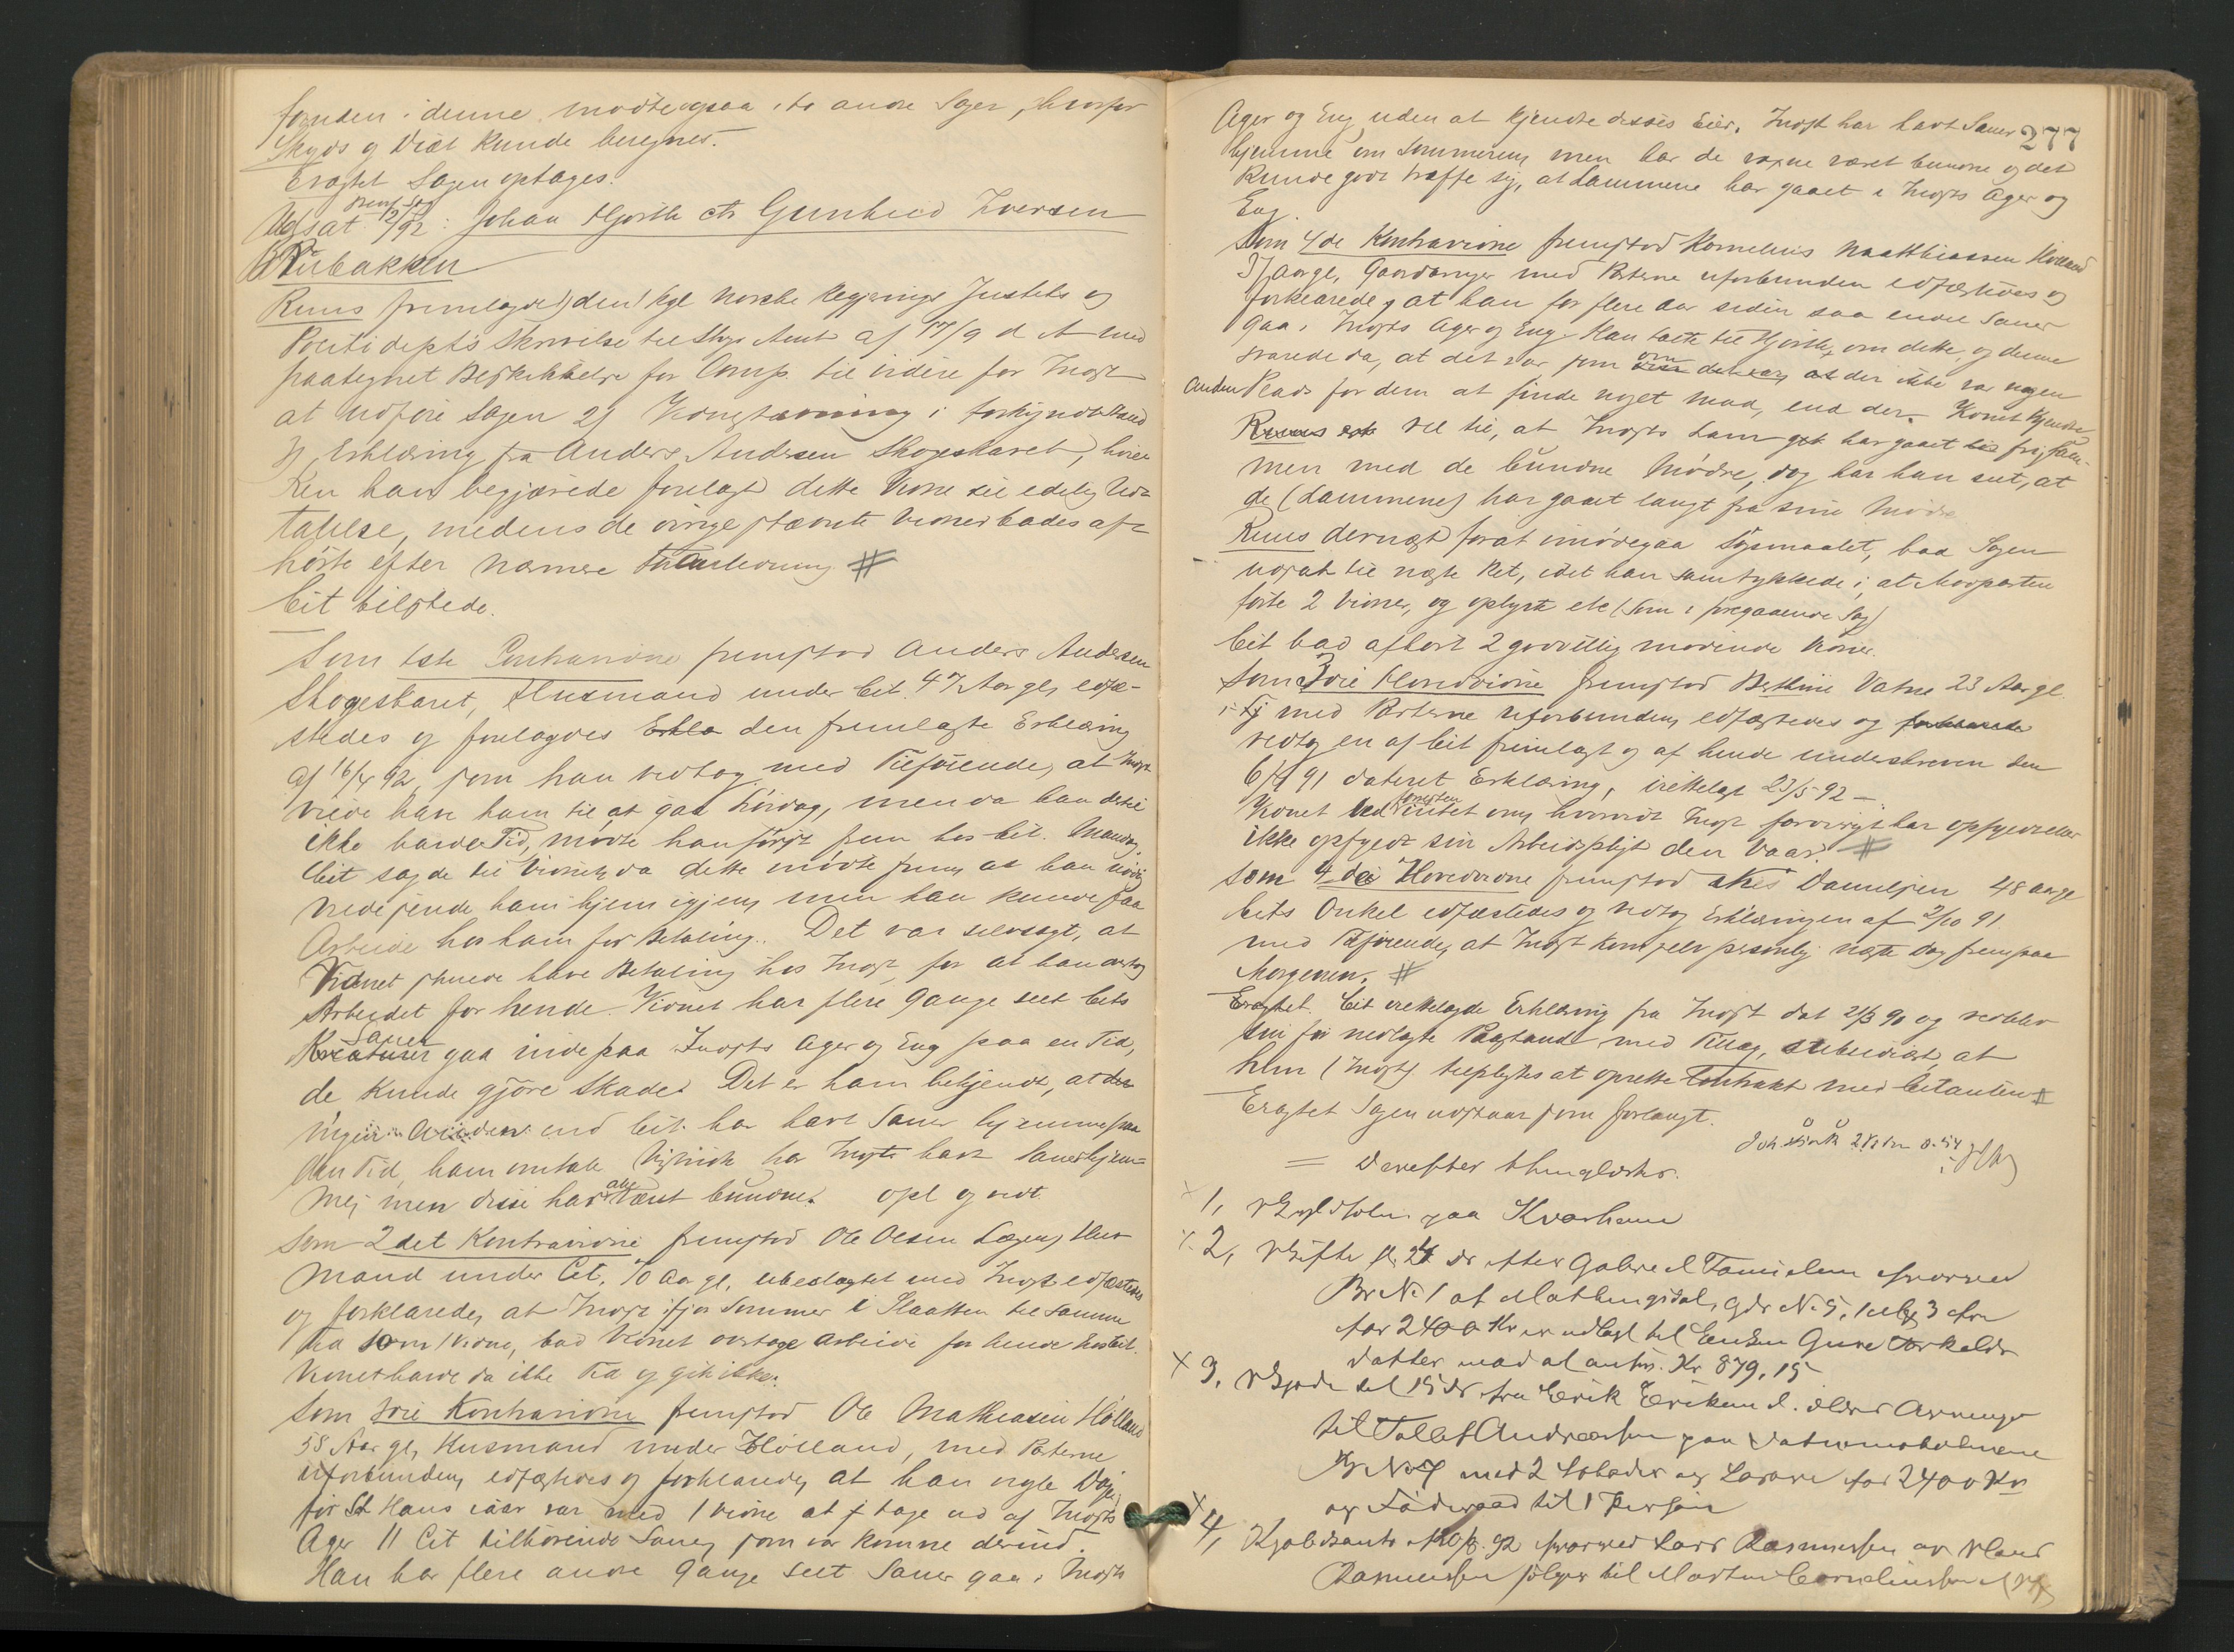 foruden i denne mødte ogsaa i to andre Sager, hvorfor
Skyds og Diæt kunde beregnes.
Eragtet Sagen optages.
Udsat Sag: Johan Hjorth ctr Gunhild Iversen
Rubakken
Ruus fremlagde den kgl norske Regjerings Justits og
Politidepts Skrivelse til Stvgr Amt af 17/9 d A med
paategnet Beskikkelse for Comp. til videre for Ingst
at udføre Sagen 2) i forkyndt Stand
3) Erklæring fra Anders Andersen Skogeskaret, hvil
ken han begjærede forelagt dette Vidne til edelig Ved-
tagelse, medens de øvrige stævnte Vidner bades af-
hørte efter nærmere #
Cit tilstede.
Som 1ste Contravidne fremstod Anders Andersen
Skogeskaret, Husmand under Cit. 47 Aar gl, edfæ-
stedes og forelagdes den fremlagte Erklæring
af 16/4 92, som han vedtog med Tilføiende, at Ingst
vilde have ham til at gaa Lørdag, men da han dertil
ikke havde Tid, mødte han først frem hos Cit. Mandag.
Cit sagde til Vidnet, da dette mødte frem, at han
vilde sende ham hjem igjen, men han kunde faa
Arbeide hos ham for Betaling. Det var selvsagt, at
Vidnet skulde have Betaling hos Ingst for at han overtog
Arbeidet for hende. Vidnet har flere Gange seet Cits
Sauer gaa inde paa Ingsts Ager og Eng paa en Tid,
de kunde gjøre Skade. Det er ham bekjendt, at der
ingen anden end Cit. har havt Sauer hjemme paa
den Tid, ham omtalt. har Ingst havt Sauer hjem-
me, men disse har alle været bundne. opl og vedt.
Som 2det Kontravidne fremstod Ole Olsen Hus-
mand under Cit, 70 Aar gl, ubeslægtet med Ingst edfæstedes
og forklarede, at Ingst ifjor Sommer i Slaatten til samme
Tid som 1 Vidne, bad Vidnet overtage Arbeide for hende hos Cit.
Vidnet havde da ikke Tid og gik ikke.
Som 3die Kontravidne fremstod Ole Mathiasen Hølland
58 Aar gl, Husmand under Hølland, med Parterne
uforbunden, edfæstedes og forklarede, at han nogle Dage
før St Hans iaar var med 1 Vidne at tage ud af Ingsts
Ager 11 Cit tilhørende Sauer, som var komne derind.
Han har flere andre Gange seet Sauer gaa i Ingsts
277
Ager og Eng uden at kjende disses Eier. Ingst har havt Sauer
hjemme om Sommeren, men har de voxne været bundne og det
kunde godt træffe sig, at Lammene har gaaet i Ingsts Ager og
Eng.
Som 4de Kontravidne fremstod Kornelius Matthiassen Hølland
Aar gl, Gaardbruger med Parterne uforbunden edfæstedes og
forklarede, at han for flere Aar siden saa endel Sauer
gaa i Ingsts Ager og Eng. Han talte til Hjorth om dette, og denne
svarede da, at det var som om der ikke var nogen
anden Plads for dem at finde noget Mad, end der. Vidnet kjender
vel til, at Ingsts Lam har gaaet frit sam-
men med de bundne Mødre, dog har han seet, at
de (Lammene) har gaaet langt fra sine Mødre
Ruus dernæst for at imødegaa Søgsmaalet, bad Sagen
udsat til næste Ret, idet han samtykkede i, at Modparten
førte 2 Vidner, og oplyste etc (som i foregaaende Sag)
Cit bad afhørt 2 godvillig mødende Vidner.
Som 3die Hovedvidne fremstod Berthine Vatne 23 Aar gl.
med Parterne uforbunden, edfæstedes og
vedtog en af Cit fremlagt og af hende underskreven den
6/4 91 dateret Erklæring, irettelagt 23/5 92 –.
Vidnet ved intet om, hvorvidt Ingst forøvrigt har opfyldt eller
ikke opfyldt sin Arbeidspligt den Vaar. #
Som 4de Hovedvidne fremstod Danielsen 48 Aar gl
Cits Onkel edfæstedes og vedtog Erklæringen af 2/10 91
med Tilføiende, at Ingst kom selv personlig næste Dag frem paa
Morgenen. #
Eragtet. Cit irettelagde Erklæring fra Ingst dat 21/3 90 og vedblev
sin før nedlagte Paastand med Tillæg, subsidiært, at
hun (Ingst) tilpligtes at oprette Contrakt med Citanten #
Eragtet Sagen udstaar som forlangt.
= Derefter thinglæstes.
1,
2, Skifte efter Gabriel
Br No 1 af gdr No 5,
for 2400 Kr er udlagt til Enken
datter mod at Kr 879,15
3, Skjøde fra Erik Eriksen
til Andreassen paa
Br No 7 med 2 og for 2400 Kr
og til 1 Person
4, 92 Lars Rasmussen og
Rasmussen til